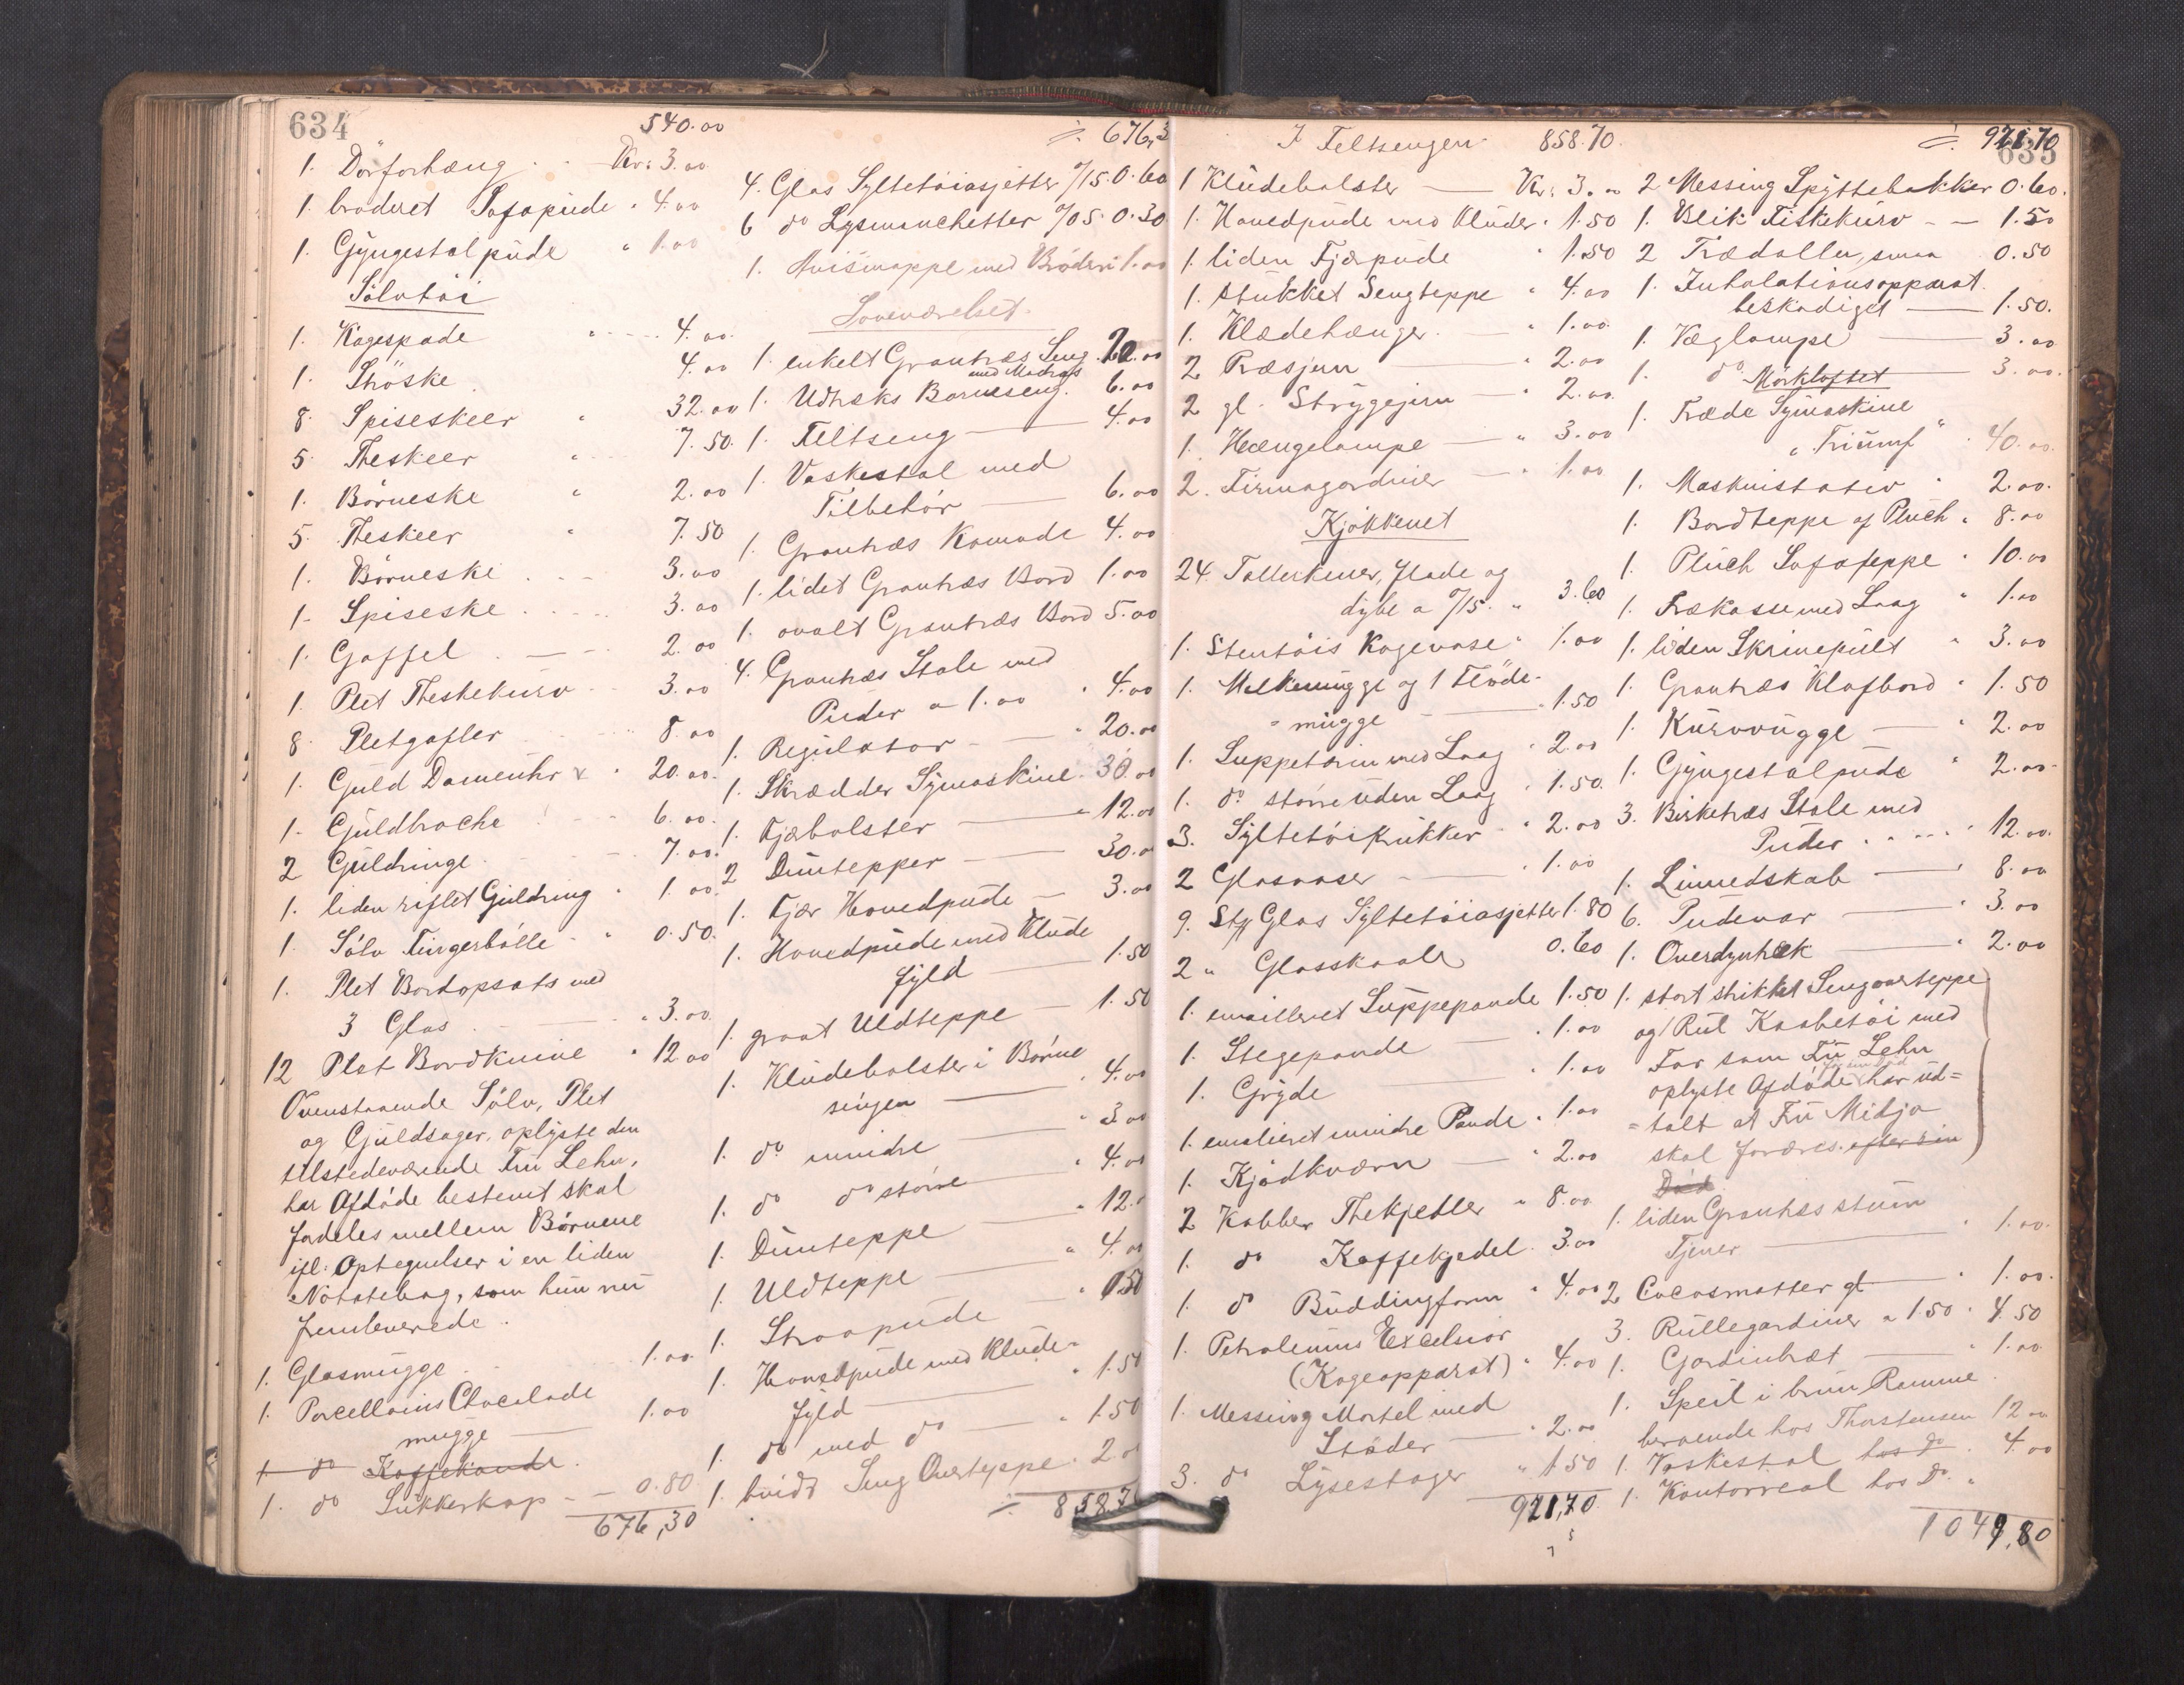 634
540.00
1. Dörforhæng Kr. 3.00
1. broderet Sofapude " 4.00
1. Gyngestolpude " 1.00
Sølvtøi
1. Kagespade " 4.00
1. Strøske 4.00
8. Spiseskeer " 32.00
5. Theskeer " 7.50
1. Børneske " 2.00
5. Theskeer " 7.50
1. Børneske 3.00
1. Spiseske 3.00
1. Gaffel 2.00
1. Plet Theskekurv 3.00
8. Pletgafler 8.00
1. Guld Dameuhr " 20.00
1. Guldbroche 6.00
2 Guldringe 7.00
1. liden riflet Guldring " 1.00
1. Sølv Fingerbølle " 0.50
1. Plet Bordopsats med
3 Glas " 3.00
12 Plet Bordknive " 12.00
Ovenstaaende Sølv, Plet
og Guldsager, oplyste den
tilstedeværende Fru Lehn,
har Afdøde bestemt skal
fordeles mellem Børnene
ifl. Optegnelser i en liden
Notatebog, som hun nu
fremleverede.
1. Glasmugge 1.00
1. Porcellains Chocolade
mugge 1.00
1 do Kaffekande
1. do Sukkerkop 0.80
676,30
÷ 676,3
4. Glas Syltetøiasjetter a/15 0.60
6 do Lysmanchetter a/05 0.30
1. Avismappe med Broderi 1.00
Soveværelset
1. enkelt Grantræs Seng 20.00
med Madras
1. Udtræks Barneseng 6.00
1. Feltseng 4.00
1. Vaskestol med
Tilbehør 6.00
1. Grantræs Komode 4.00
1. lidet Grantræs Bord 1.00
1. ovalt Grantræs Bord 5.00
4. Grantræs Stole med
Puder a 1.00 " 4.00
1. Regulator " 20.00
1. Skrædder Symaskine 30.00
1. Fjærbolster " 12.00
2 Duntepper 30.00
1. Fjær Hovedpude 3.00
1. Hovedpude med Klude
fyld 1.50
1. graat Uldteppe 1.50
1. Kludebolster i Børne
sengen " 4.00
1. do mindre " 3.00
1. do do større " 4.00
1. Dunteppe " 12.
1. Uldteppe " 4.00
1. Straapude " 0.50
1. Hovedpude med Klude-
fyld " 1.50
1. do med do " 1.50
1. hvidt Seng Overteppe " 2.00
÷ 858.70
I Feltsengen 858.70
1 Kludebolster Kr. 3.00
1. Hovedpude med Kluder " 1.50
1. liden Fjærpude " 1.50
1. stukket Sengteppe " 4.00
1. Klædehænger " 1.00
2 Præsjern " 2.00
2 gl. Strygejern " 2.00
1. Hængelampe " 3.00
2. Firmagardiner " 1.00
Kjøkkenet
24. Tallerkener, flade og
dybe a a/15 " 3.60
1. Stentøis Kagevase " 1.00
1. Melkemugge og 1 Fløde-
mugge " 1.50
1. Suppeterin med Laag " 2.00
1. do større uden Laag " 1.50
3. Syltetøikrukker " 2.00
2 Glasvaser " 1.00
9. Stk Glas Syltetøiasjetter 1.80
2 " Glasskaale 0.60
1. emailleret Suppepande 1.50
1. Stegepande " 1.00
1. Gryde " 1.00
1. emalieret mindre Pande " 1.00
1. Kjødkværn " 2.00
2 Kobber Thekjedler " 8.00
1. do Kaffekjedel 3.00
1. do Buddingform " 4.00
1. Petroleums Excelsior
(Kogeapparat) " 4.00
1. Messing Mortel med
Støder " 2.00
3. do Lysestager " 1.50
921,70
÷ 921.70
635
2 Messing Spyttebakker 0.60
1. Blik Fiskekurv 1.50
2 Trædaller, smaa 0.50
1. Inhalationsapparat
beskadiget 1.50
1. Væglampe 3.00
1. do 3.00
Mørkloftet
1. Træde Symaskine
"Triumf" 40.00
1. Maskinstativ " 2.00
1. Bordteppe af Plüch " 8.00
1. Plüch Sofateppe " 10.00
1. Trækasse med Laag " 1.00
1. liden Skrinepult " 3.00
1. Grantræs Klafbord " 1.50
1. Kurvvugge " 2.00
1. Gyngestolpude " 2.00
3. Birketræs Stole med
Puder " 12.00
1. Linnedskab " 8.00
6. Pudevar " 3.00
1. Overdyntræk " 2.00
1. stort strikket Sengoverteppe
og 1 Rul Kaabetøi med
For som Fru Lehn
oplyste Afdøde har ud=
=talt at Fru Midjo
skal foræres efter sin
Død
1. liden Grantræs stum
Tjener " 1.00
2 Cocosmatter gl " 1.00
3. Rullegardiner a 1.50 " 4.50
1. Gardinbræt " 1.00
1. Speil i brun Ramme
beroende hos Thorstensen 12.00
1. Vaskestol hos do 4.00
1. Kontorreol hos do "
1049,80